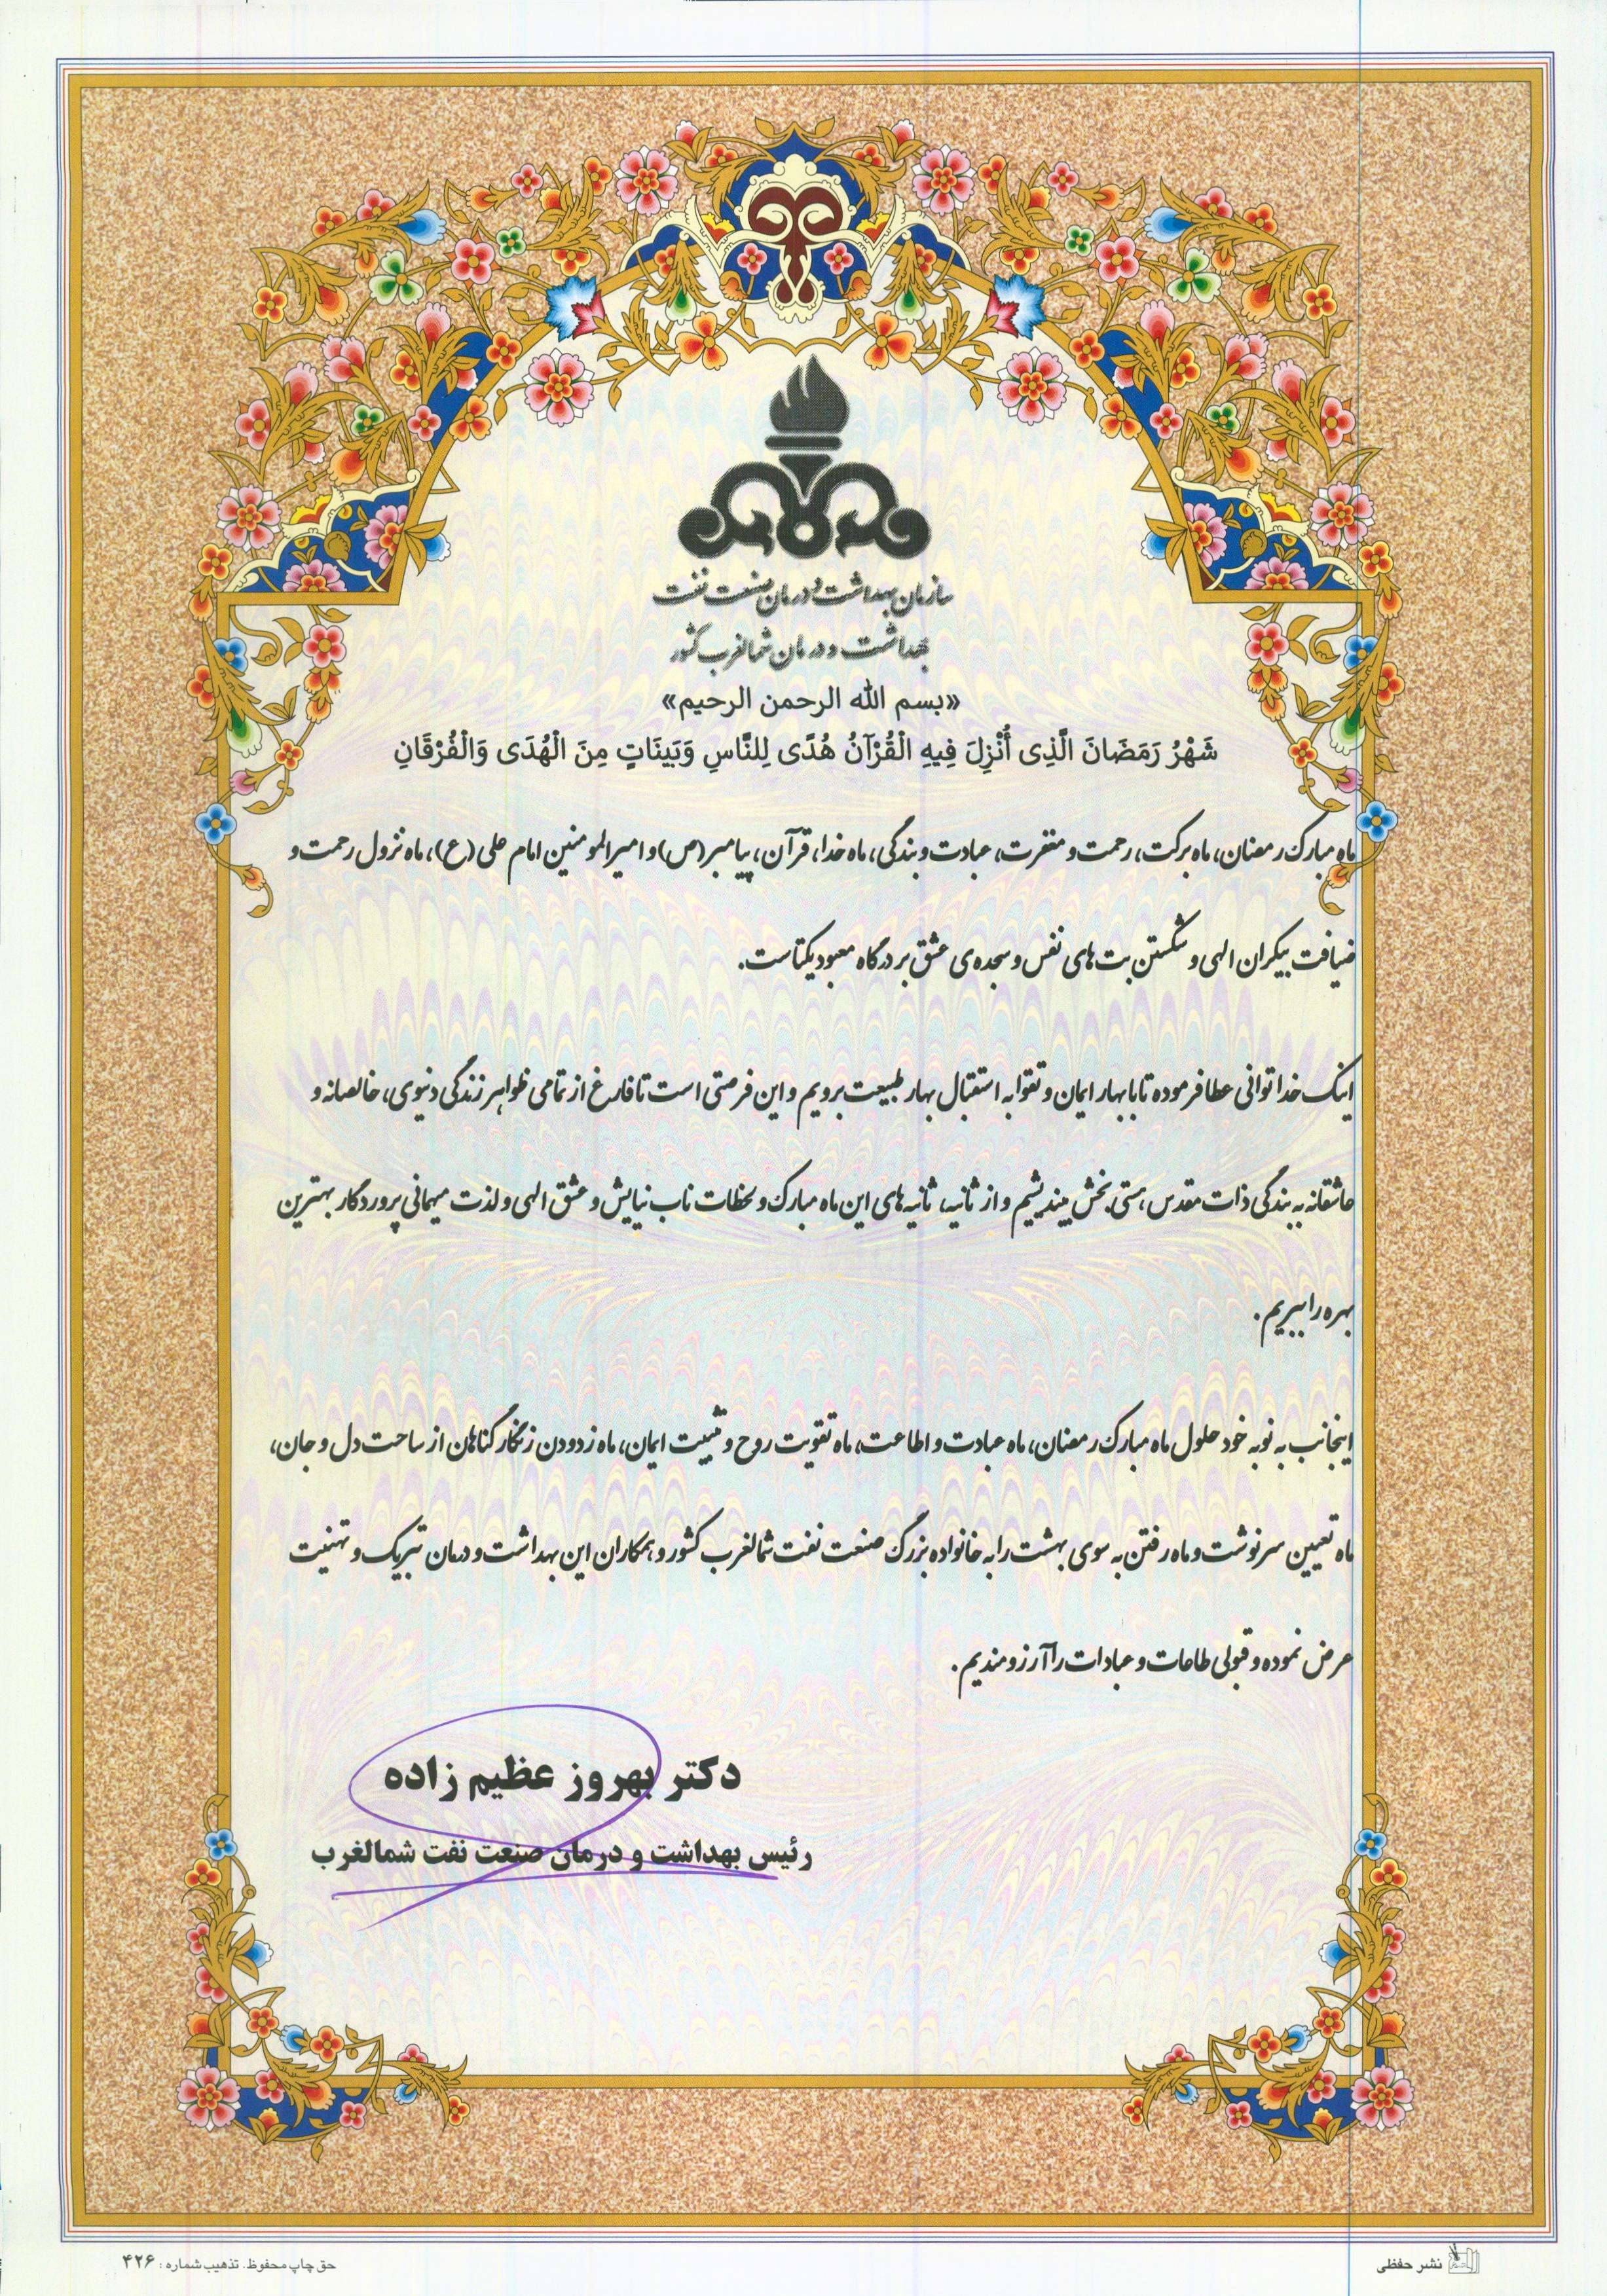 سازمان بهداشت و درمان صنعت نفت
بهداشت و درمان شمالغرب کشور
«بسم الله الرحمن الرحیم»
شَهْرُ رَمَضَانَ الَّذِی أُنْزِلَ فِیهِ الْقُرْآنُ هُدًى لِلنَّاسِ وَبَینَاتٍ مِنَ الْهُدَى وَالْفُرْقَانِ
ماه مبارک رمضان، ماه برکت، رحمت و مغفرت، عبادت و بندگی، ماه خدا، قرآن، پیامبر (ص) و امیرالمومنین امام علی (ع)، ماه نزول رحمت و
ضیافت بیکران الهی و شکستن بت های نفس و سجده ی عشق بر درگاه معبود یکتاست.
اینک خدا توانی عطا فرموده تا با بهار ایمان و تقوا به استقبال بهار طبیعت برویم و این فرصتی است تا فارغ از تمامی ظواهر زندگی دنیوی، خالصانه و
عاشقانه به بندگی ذات مقدس هستی بخش بیندیشیم و از ثانیه، ثانیه های این ماه مبارک و لحظات ناب نیایش و عشق الهی و لذت میهمانی پروردگار بهترین
بهره را ببریم.
اینجانب به نوبه خود حلول ماه مبارک رمضان، ماه عبادت و اطاعت، ماه تقویت روح و تثبیت ایمان، ماه زدودن زنگار گناهان از ساحت دل و جان،
ماه تعیین سرنوشت و ماه رفتن به سوی بهشت را به خانواده بزرگ صنعت نفت شمالغرب کشور و همکاران این بهداشت و درمان تبریک و تهنیت
عرض نموده و قبولی طاعات و عبادات را آرزومندیم.
دکتر بهروز عظیم زاده
رئیس بهداشت و درمان صنعت نفت شمالغرب
نشر حفظی
حق چاپ محفوظ. تذهیب شماره: ۴۲۶